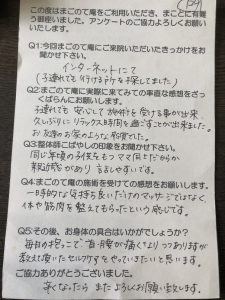 この度はまごのて庵をご利用いただき、まことに有難
う御座いました。アンケートのご協力よろしくお願い
いたします。
Q1:今回まごのて庵にご来院いただいたきっかけをお
聞かせ下さい。
インターネットにて
(子連れでも行ける所を探してました)
Q2:まごのて庵に実際に来てみての率直な感想をざっ
くばらんにお願いします。
子連れでも安心して施術を受ける事が出来
久しぶりにリラックス時間を過ごすことが出来ました。
お友達のお家のような感覚でした。
Q3:整体師こばやしの印象をお聞かせ下さい。
同じ年頃の子供をもつママ同士だから
親近感があり話しやすいです。
Q4:まごのて庵の施術を受けての感想をお願いします。
一時的な気持ち良いだけのマッサージではなく、
体や筋肉を整えてもらったという感じです。
Q5:その後、お身体の具合はいかがでしょうか?
毎日の抱っこで首・腰が痛くなりつつありますが
教えて頂いたセルフケアをやっていきたいと思います。
ご協力ありがとうございました。
辛くなったらまたよろしくお願い致します。